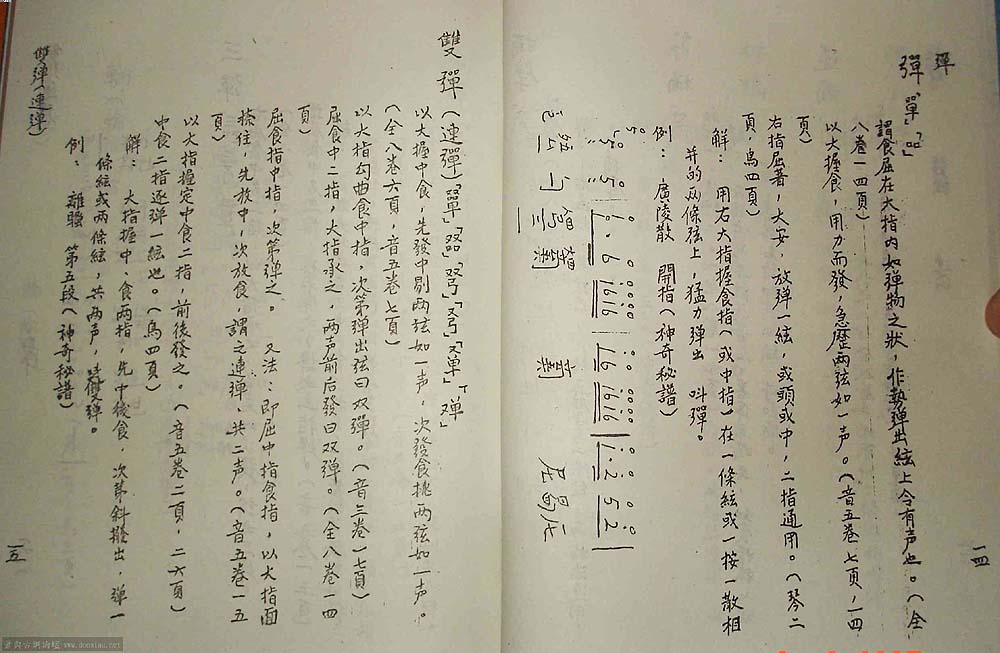 彈
彈「單」「㗊」
謂食屈在大指内如弹物之狀，作勢弹出絃上令有声也。（全
八卷一四頁）
以大握食，用力而發，急歷兩弦如一声。（音五卷七頁，一四
頁）
右指屈著，大安，放弹一絃，或頭或中，二指通用。（琴二
頁，烏四頁）
解： 用右大指握食指（或中指）在一條絃或一按一散相
并的兩條弦上，猛力弹出 叫彈。
例： 廣陵散 開指（神奇秘譜）
一四
雙彈（連彈）
以大握中食，先發中剔两弦如一声，次發食挑两弦如一声。
（全八卷六頁，音五卷七頁）
以大指勾曲食中指，次第弹出弦曰双彈。（音三卷一七頁）
屈食中二指，大指承之，两声前后發曰双弹。（全八卷一四
頁）
屈食指中指，次第彈之。 又法：即屈中指食指，以大指面
捺住，先放中，次放食，謂之連彈，共二声。（音五卷一五
頁）
以大指握定中食二指，前後發之。（音五卷二頁，二六頁）
中食二指逐弹一弦也。（烏四頁）
解： 大指握中、食两指，先中後食，次第斜撥出，弹一
條絃或两條絃，共两声，叫雙弹。
例： 離騷 第五段（神奇秘譜）
雙彈（連彈）
一五